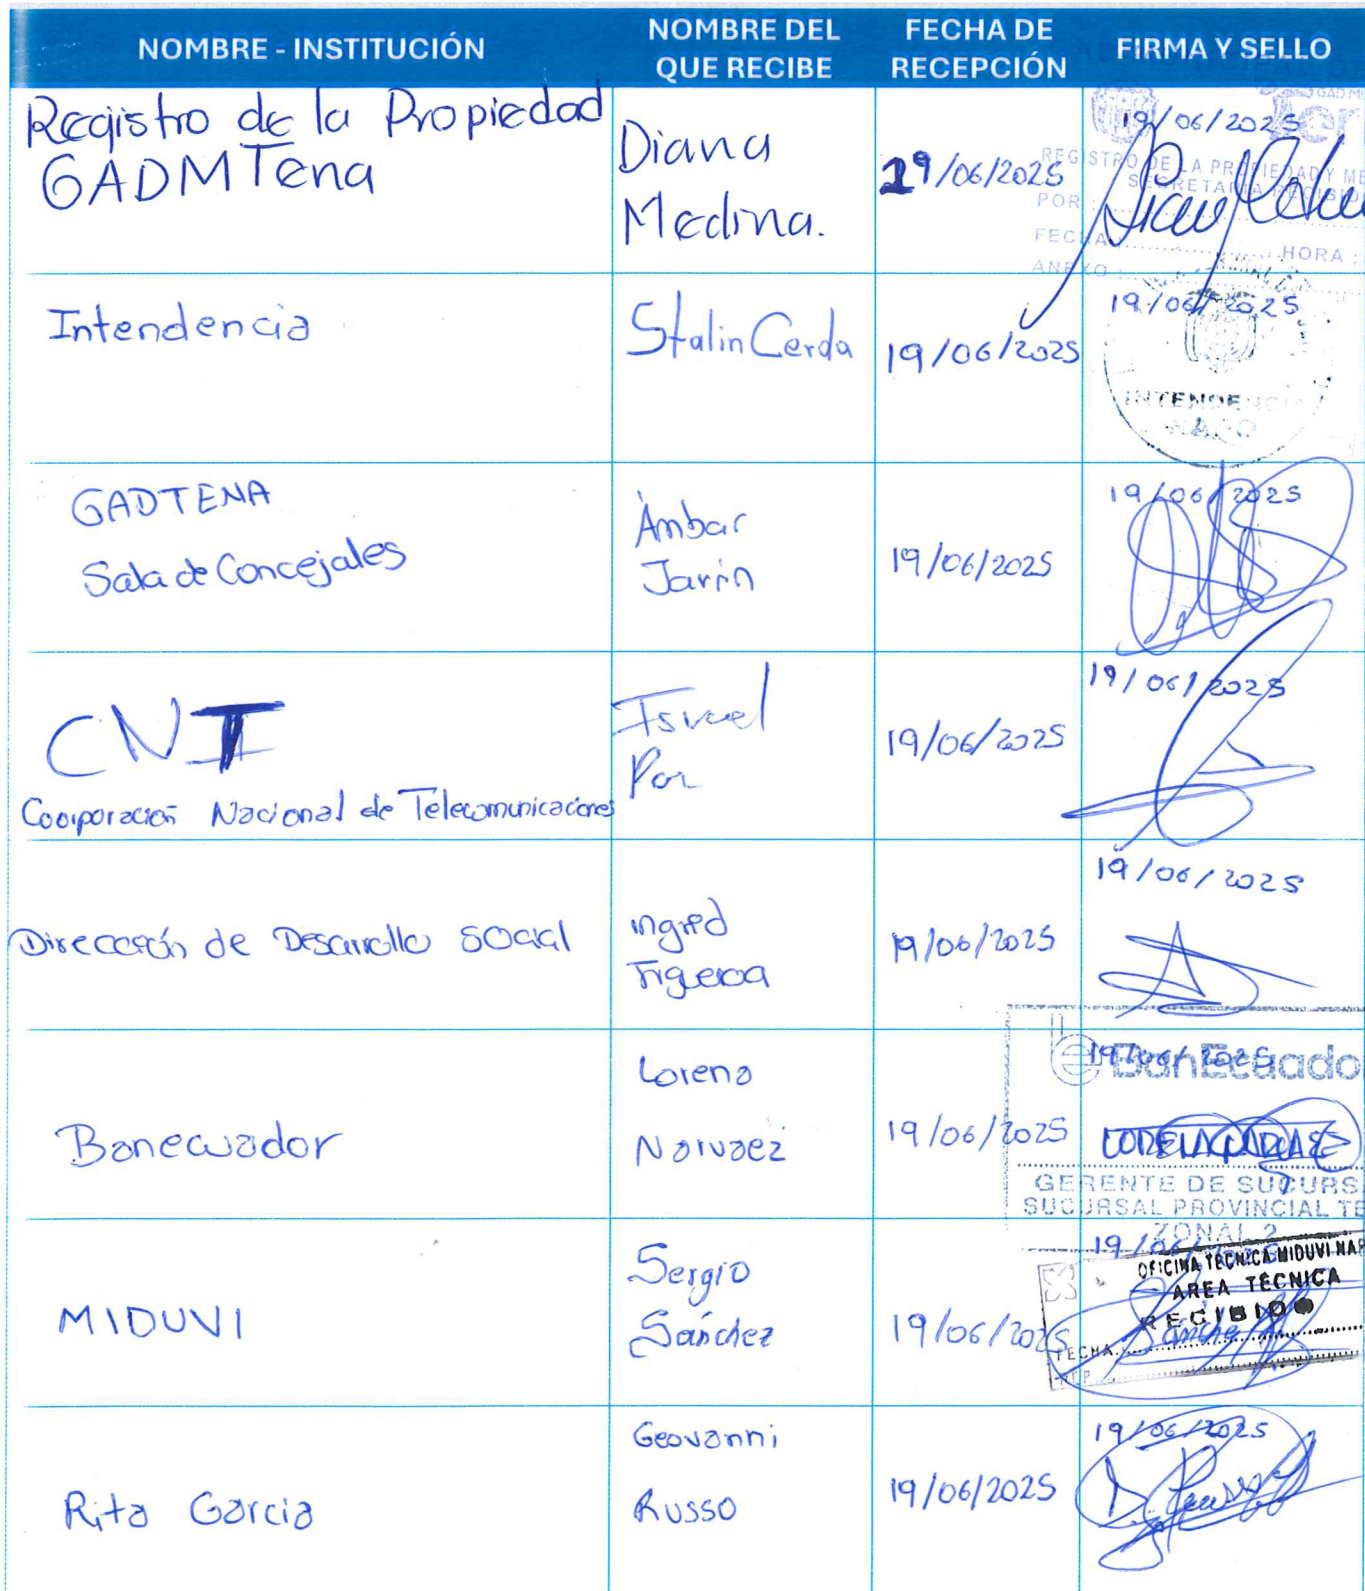 NOMBRE - INSTITUCIÓN
NOMBRE DEL QUE RECIBE
FECHA DE RECEPCIÓN
FIRMA Y SELLO
Registro de la Propiedad
GADMTena
Diana
Medina.
19/06/2025
19/06/2025
REGISTRO DE LA PROPIEDAD Y ME
SECRETARIA
POR :
FECHA HORA :
ANEXO :
Intendencia
Stalin Cerda
19/06/2025
19/06/2025
INTENDENCIA
NAPO
GADTENA
Sala de Concejales
Ámbar
Jarrín
19/06/2025
19/06/2025
CNT
Coorporación Nacional de Telecomunicaciones
Israel
19/06/2025
19/06/2025
Dirección de Desarrollo Social
Ingrid
Figeroa
19/06/2025
19/06/2025
Banecuador
Lorena
Narvaez
19/06/2025
19/06/2025
BanEcuado
GERENTE DE SUCURSA
SUCURSAL PROVINCIAL TE
ZONAL 2
MIDUVI
Sergio
Sánchez
19/06/2025
19/06/2025
OFICINA TECNICA MIDUVI NAP
AREA TECNICA
RECIBIDO
FECHA:
Rita Garcia
Geovanni
Russo
19/06/2025
19/06/2025